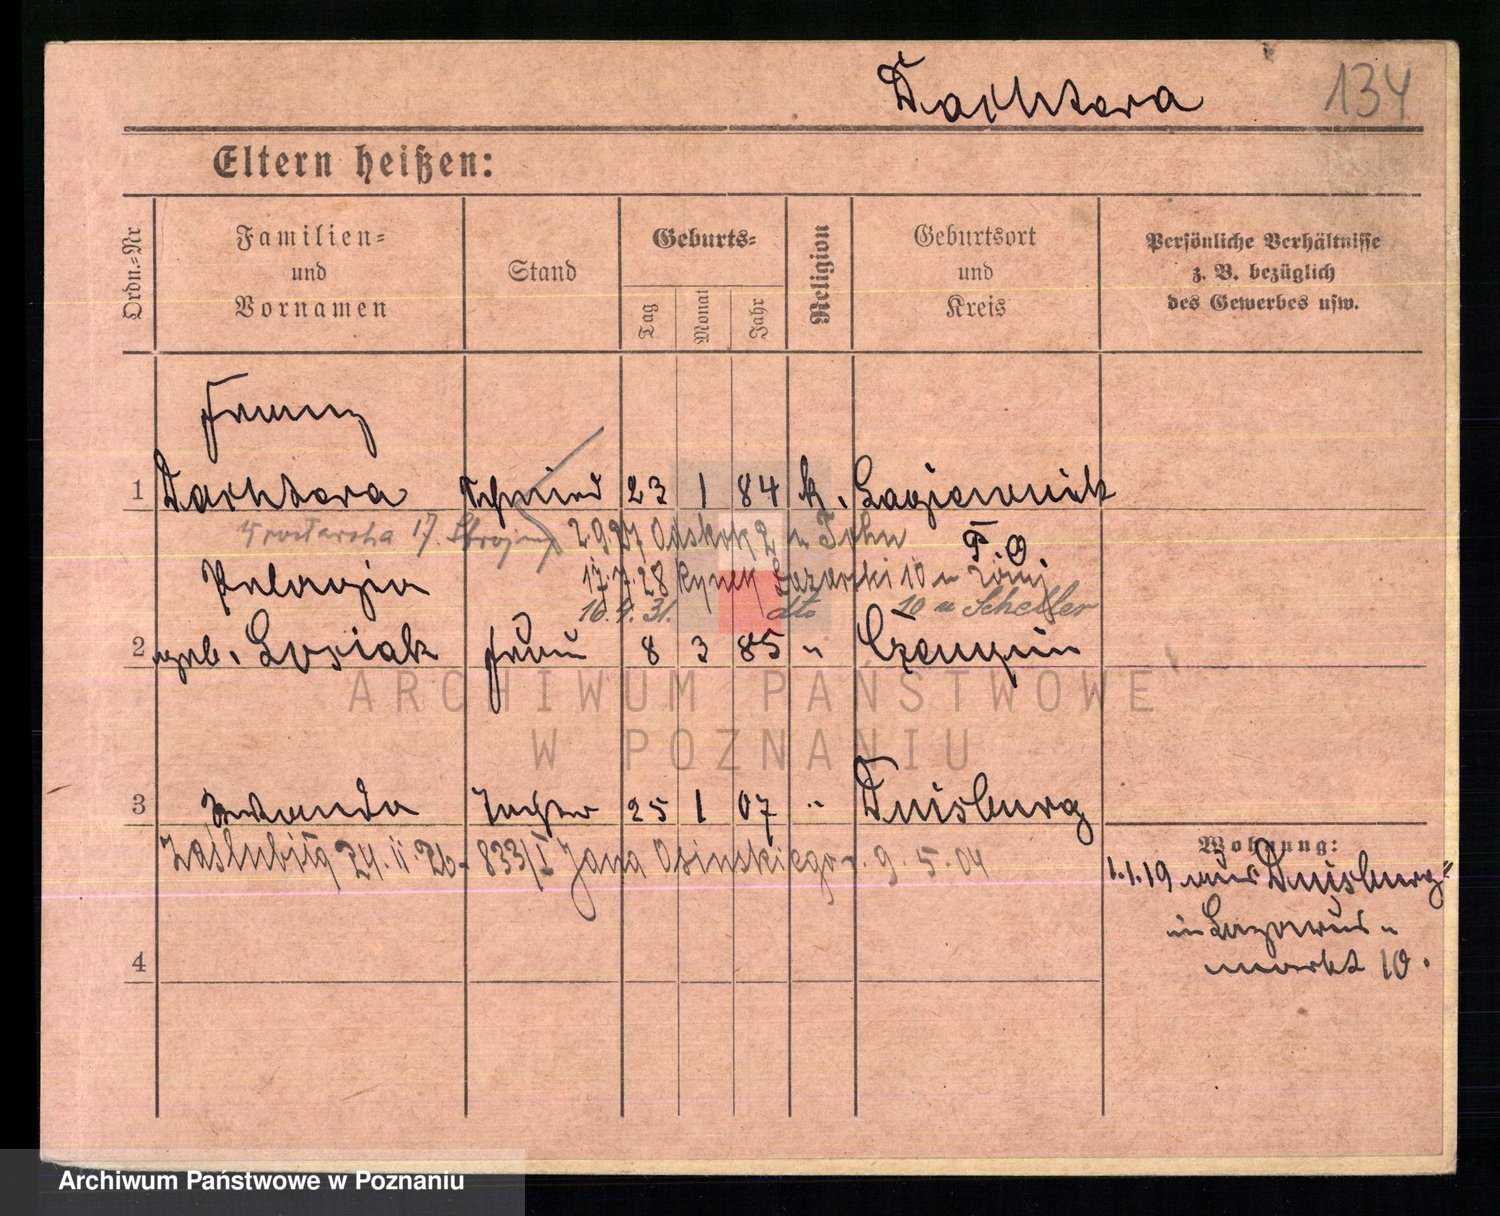 Dachtera 134
Eltern heißen:
Ordn.-Nr
Familien=
und
Vornamen
Stand
Geburts=
Tag
Monat
Jahr
Religion
Geburtsort
und
Kreis
Persönliche Verhältnisse
z. B. bezüglich
des Gewerbes usw.
Franz
1 Dachtera Schmied 23 1 84 k. Lagiewnik
17. 2.9.27 2 u
P. O.
Pelagia 17.7.28 Rynek Łazarski 10 u
16.4.31. dto 10 u Scheffler
2 geb. Losiak Frau 8 3 85 " Czempin
ARCHIWUM PAŃSTWOWE
W POZNANIU
3 Wanda Tochter 25 1 07 " Duisburg
Zaślubiła 24.11.26 833/I Jana Osinskiego 9.5.04
Wohnung:
1.1.19 aus Duisburg
Lazarus-
4
markt 10.
Archiwum Państwowe w Poznaniu